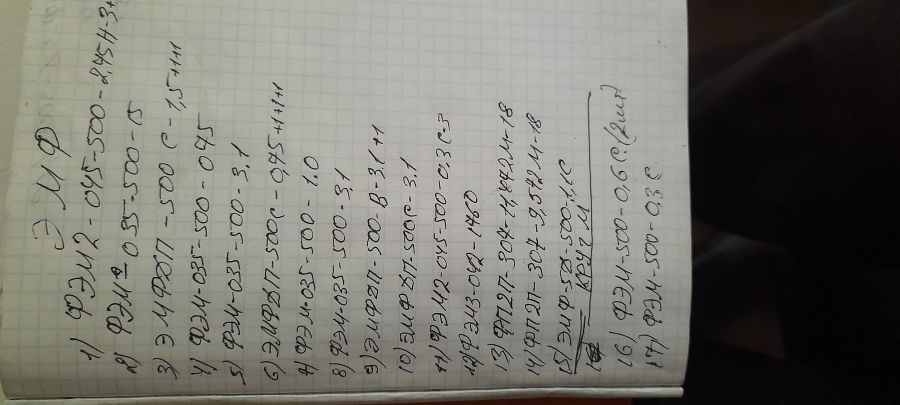 ЭМФ
1) ФЭМ2-045-500-2,45Н-3+
2) ФЭМ2-035-500-15
3) ЭМФДП-500С-1,5+1+1
4) ФЭМ-035-500-0,45
5) ФЭМ-035-500-3,1
6) ЭМФДП-500С-0,45+1+1+1
7) ФЭМ-035-500-1.0
8) ФЭМ-035-500-3,1
9) ЭМФДП-500-В-3,1+1
10) ЭМФДП-500С-3,1
11) ФЭМ2-045-500-0,3С-3
12) ФЭМ3-042-1460
13) ФП2П-307-14,872М-18
14) ФП2П-307-9,572М-18
15) ЭМФ-5Д-500-1,1С
КРУГ М
16) ФЭМ-500-0,6С (2шт)
17) ФЭМ-500-0,3С